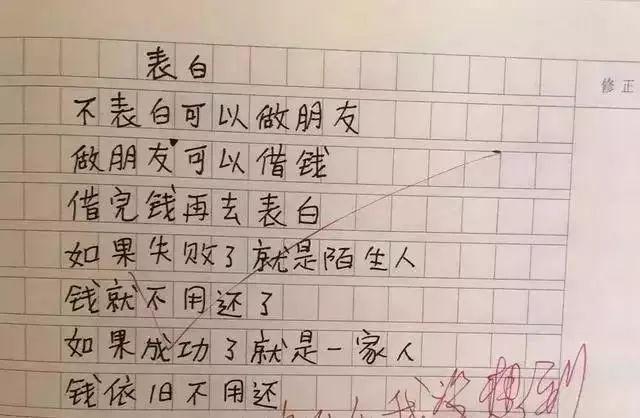 表白
修正
不表白可以做朋友
做朋友可以借钱
借完钱再去表白
如果失败了就是陌生人
钱就不用还了
如果成功了就是一家人
钱依旧不用还
我没想到